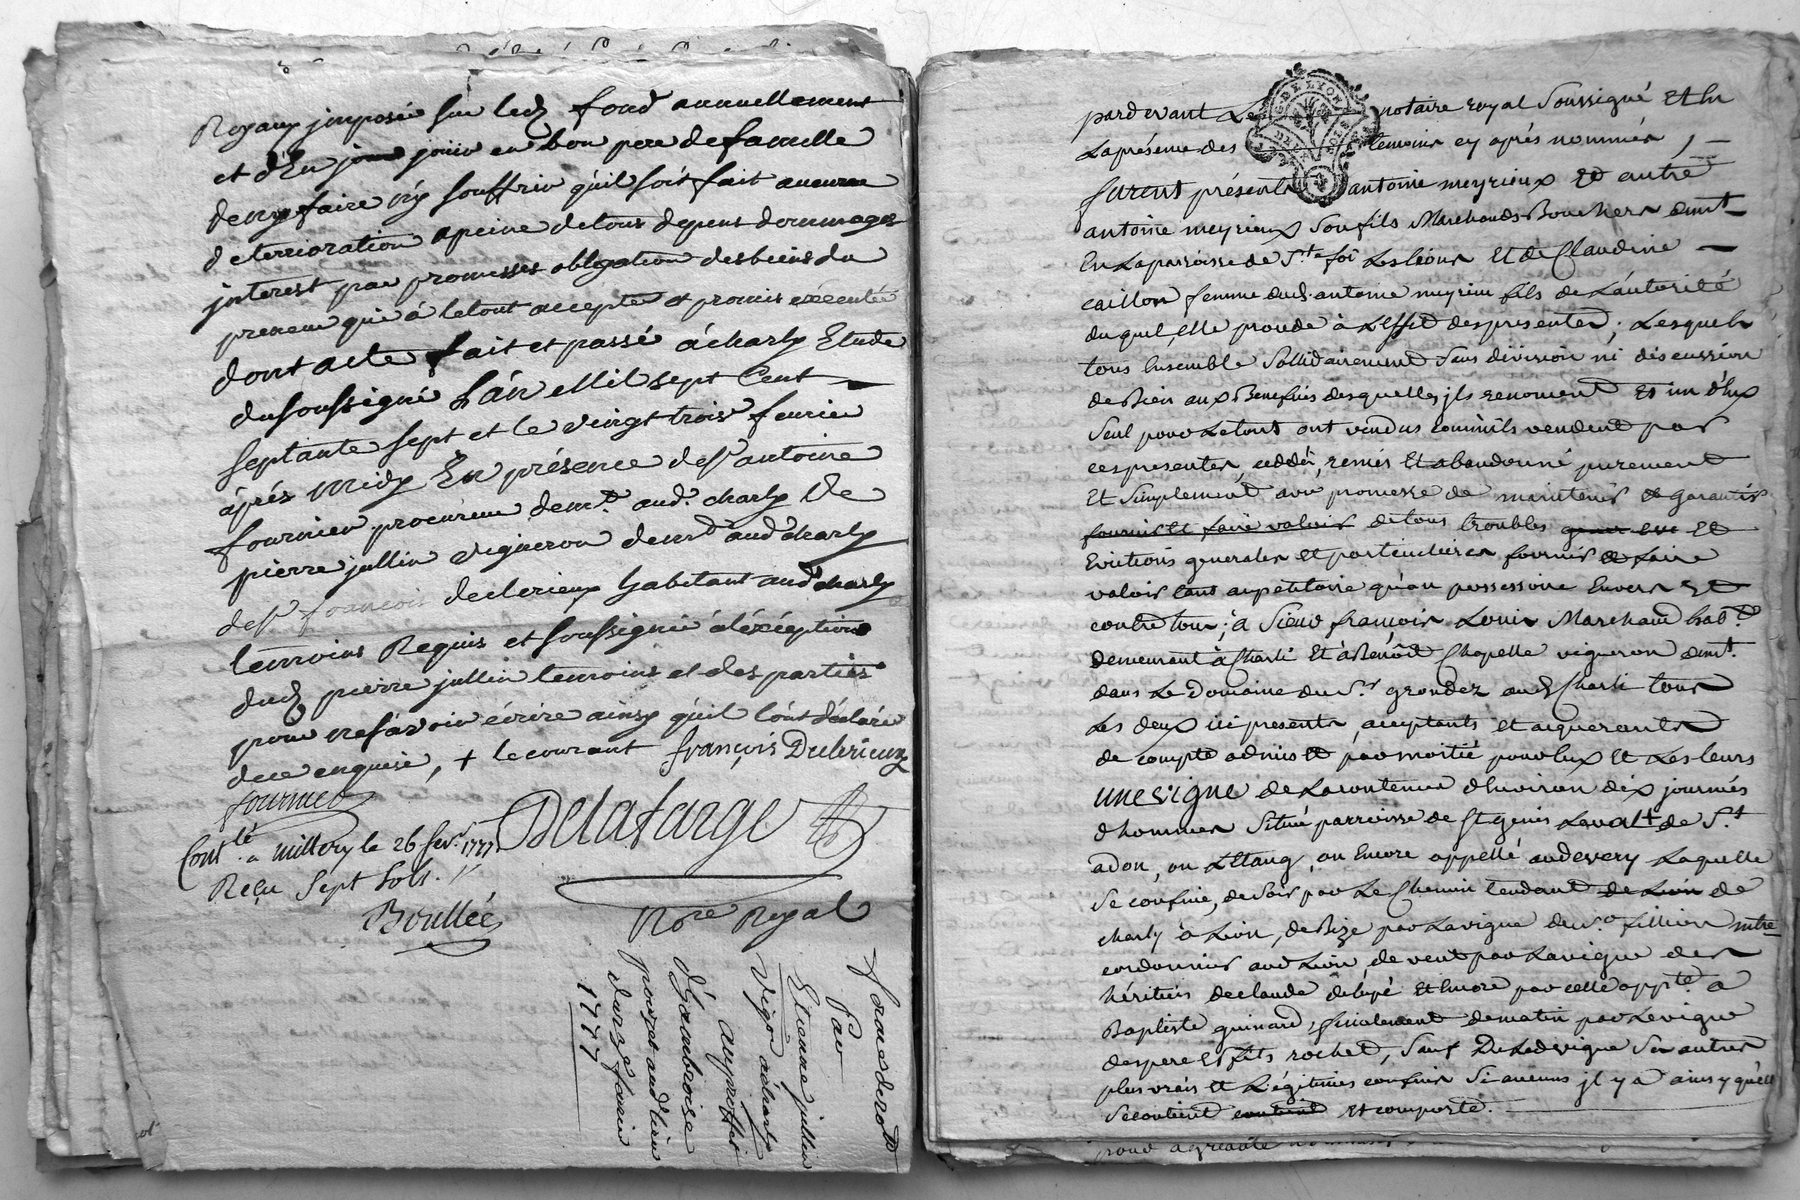 Royaux jmposée sur led. fond annuellement
et d'En jouir en bon pere defamille
deny faire ny souffrir qu'il soit fait aucune
deterrioration apeine detous depens dommages
jnterest par promesses obligation desbiens du
preneur qui à letout accepter et promis exécuter
dont acte fait et passé à charly Etude
dusoussigné L'an Mil sept Cent
septante sept et le vingt trois feurier
àprés midy En présence des.r antoine
fournier procureur dem.t aud. charly De
pierre jullin vigneron dem.t aud charly
des.r françois declerieux habitant aud charly
temoins Requis et soussignié àl'éxception
dud. pierre jullin temoins et des parties
pour nesávoir écrire ainsy qu'il l'ont déclaré
dece enquise, + le courant françois Declerieux
fournier
Delafarge
Con.lé a millery le 26 fév.r 1777
Reçu Sept sols.
Boullée
No.re Royal
Par
Etienne jullin
vigon àcharly
auproffit
d'Gambroise
pouzet aud lieu
1777
G. DE LYON
DEUX SOLS
pardevant Le notaire royal soussigné Et En
Laprésence des temoins cy aprés nommés,
furent présents antoine meyrieux Et autre
antoine meyrieux son fils Marchands Bouchers dem.t
En Laparroisse de S.te foi Leslions Et de Claudine
caillon femme dud. antoine meyrieu fils de Lautorité
duquel, elle procede à L'effet despresentes; Lesquels
tous Ensemble sollidairement sans division ni discussion
de Bien aux Benefices desquelles jls renoncent Et un d'Eux
seul pour Letout ont vendus comm'ils vendent par
ces presentes, ceddés, remis Et abandonné purement
Et simplement avec promesse de maintenir Et garantir
fournir Et faire valoir de tous troubles Et
Evictions generales et particulieres fournir Et faire
valoir tant aupetitoire qu'au possessoire Envers Et
contre tous; à Sieur françois Louis Marchand hab.t
demeurant à Charli Et à Benoît Chapelle vigneron dem.t
dans Le Domaine du S.r grondez aud Charli tous
Les deux ici presents, acceptants et acquereurs
de compte admis Et par moitié pour Eux Et Les leurs
une vigne de Lacontenue d'Environ dix journés
d'hommes située parroisse de S.t genis Laval + de S.t
adon, ou L'Etang, ou Encore appellé audevery Laquelle
se confine, de soir par Le Chemin tendant de Lion de
charly à Lion, de Bize par Lavigne du s.r fillion mtre
cordonnier aud Lion, de vent par Lavigne des
héritiers de claude Et Encore par celle app.te a
Baptiste guinand, finalement de matin par La vigne
des pere Et fils rochet, sauf De Ladvigne ses autres
plus vrais Et Légitimes confins si aucuns jl y a ainsy qu'elle
secontient contient Et comporte.